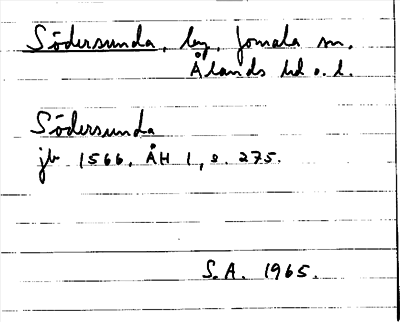 Södersunda, by, Jomala sn,
Ålands hd o. l.
Södersunda
jb 1566. ÅH 1, s. 275.
S.A. 1965.